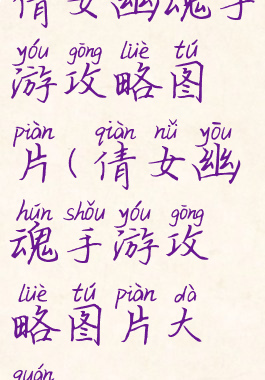 倩女幽魂手
yóu gōng lüè tú
游攻略图
piàn qiàn nǚ yōu
片(倩女幽
hún shǒu yóu gōng
魂手游攻
lüè tú piàn dà
略图片大
quán